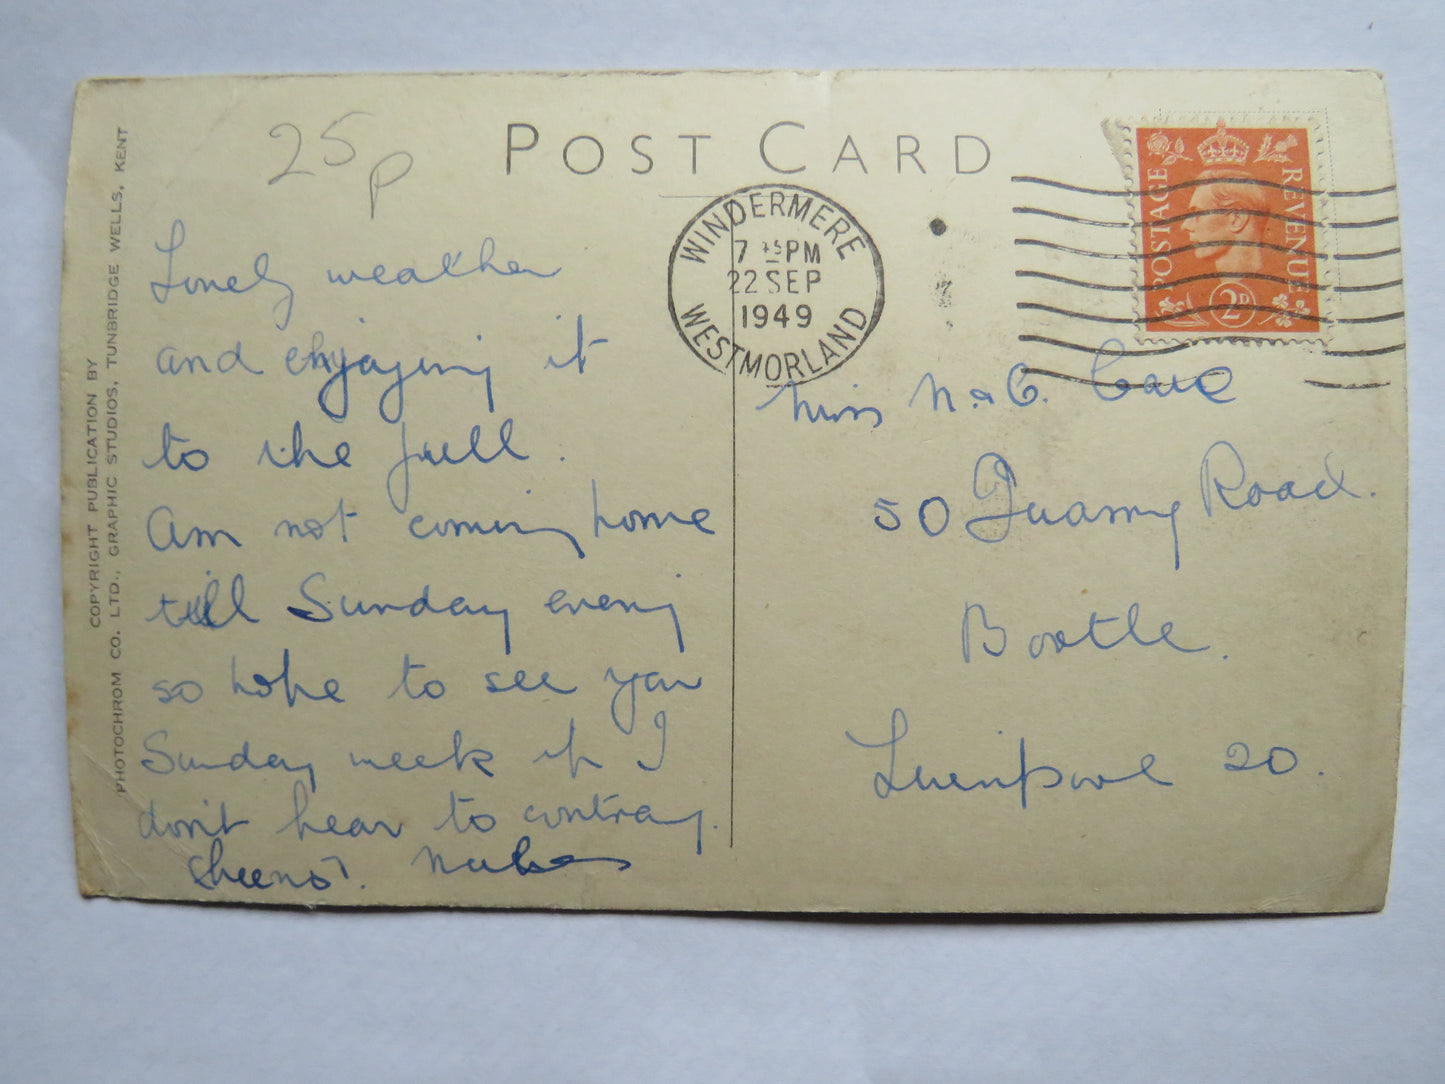 25p
POST CARD
COPYRIGHT PUBLICATION BY
PHOTOCHROM CO. LTD., GRAPHIC STUDIOS, TUNBRIDGE WELLS, KENT
WINDERMERE
7 15 PM
22 SEP
1949
WESTMORLAND
POSTAGE
REVENUE
2D
Lovely weather
and enjoying it
to the full.
Am not coming home
till Sunday evening
so hope to see you
Sunday week if I
don't hear to contrary.
Cheerio!
Miss N. & C.
50 Road.
Bootle.
Liverpool 20.